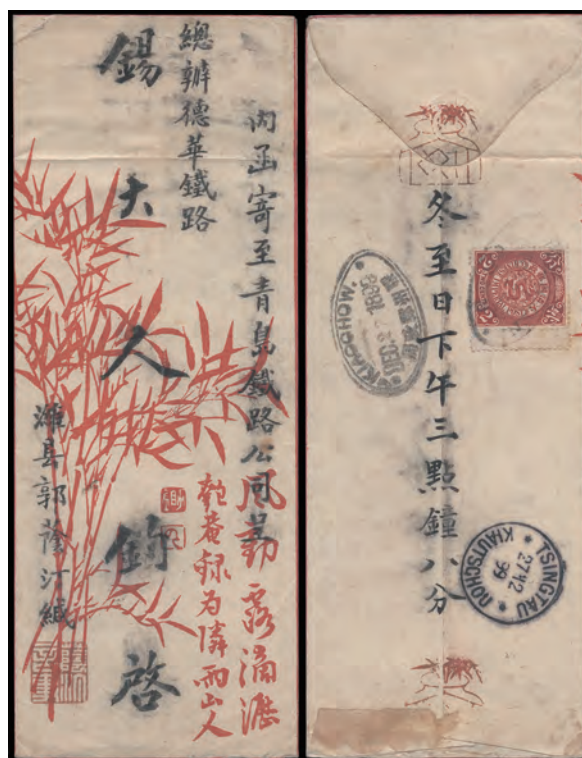 內函寄至青島鐵路公司呈
總辦德華鐵路
錫大人鈞啓
濰县郭蔭汀緘
風動露滴瀝
乾菴録为隣雨山人
冬至日下午三點鐘八分
KIAOCHOW.
DEC 27 1899
TSINGTAU
27 12
99
KIAUTSCHOU